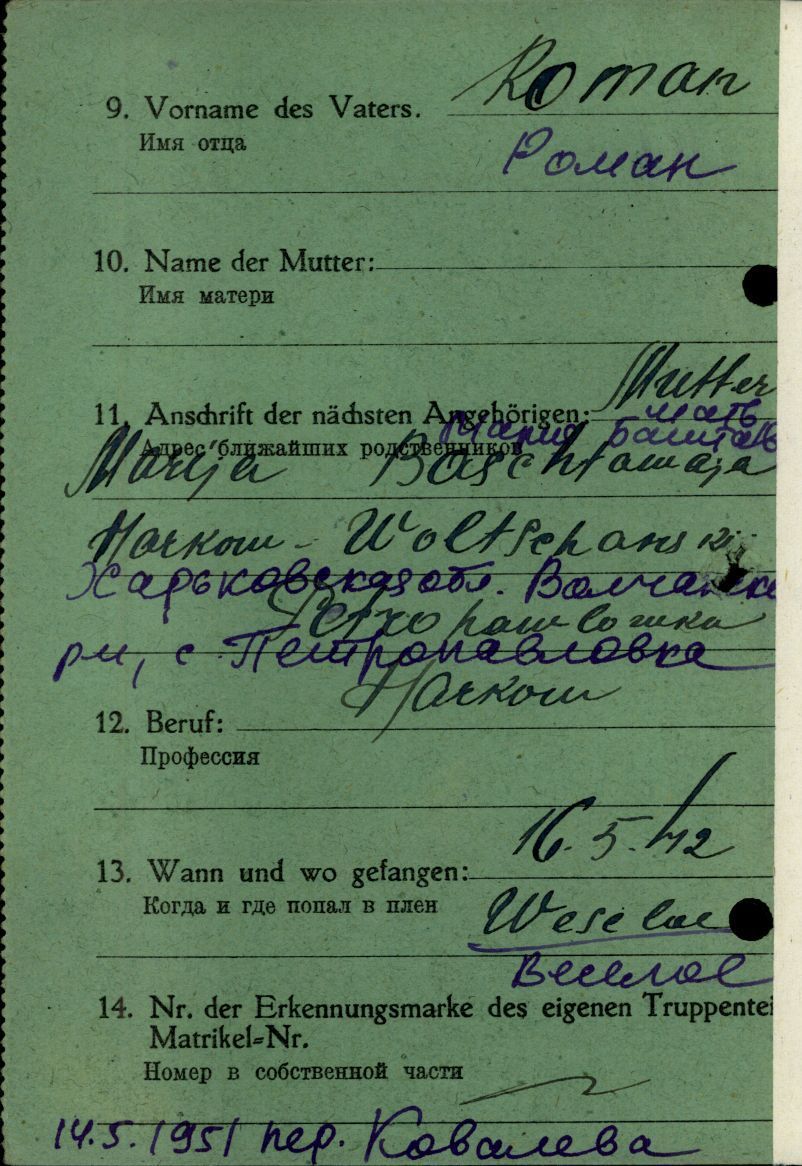 9. Vorname des Vaters. Roman
Имя отца
Роман
10. Name der Mutter:
Имя матери
Mutter
11. Anschrift der nächsten Angehörigen:
мать
Мария
Адрес ближайших родственников
Marija
Woltschansk
Харьковская обл. Волчанск
рн, с Петропавловка
12. Beruf:
Профессия
16.5.42
13. Wann und wo gefangen:
Когда и где попал в плен
Weseloe
Веселое
14. Nr. der Erkennungsmarke des eigenen Truppentei
Matrikel-Nr.
Номер в собственной части
14.5.1951 пер. Ковалева